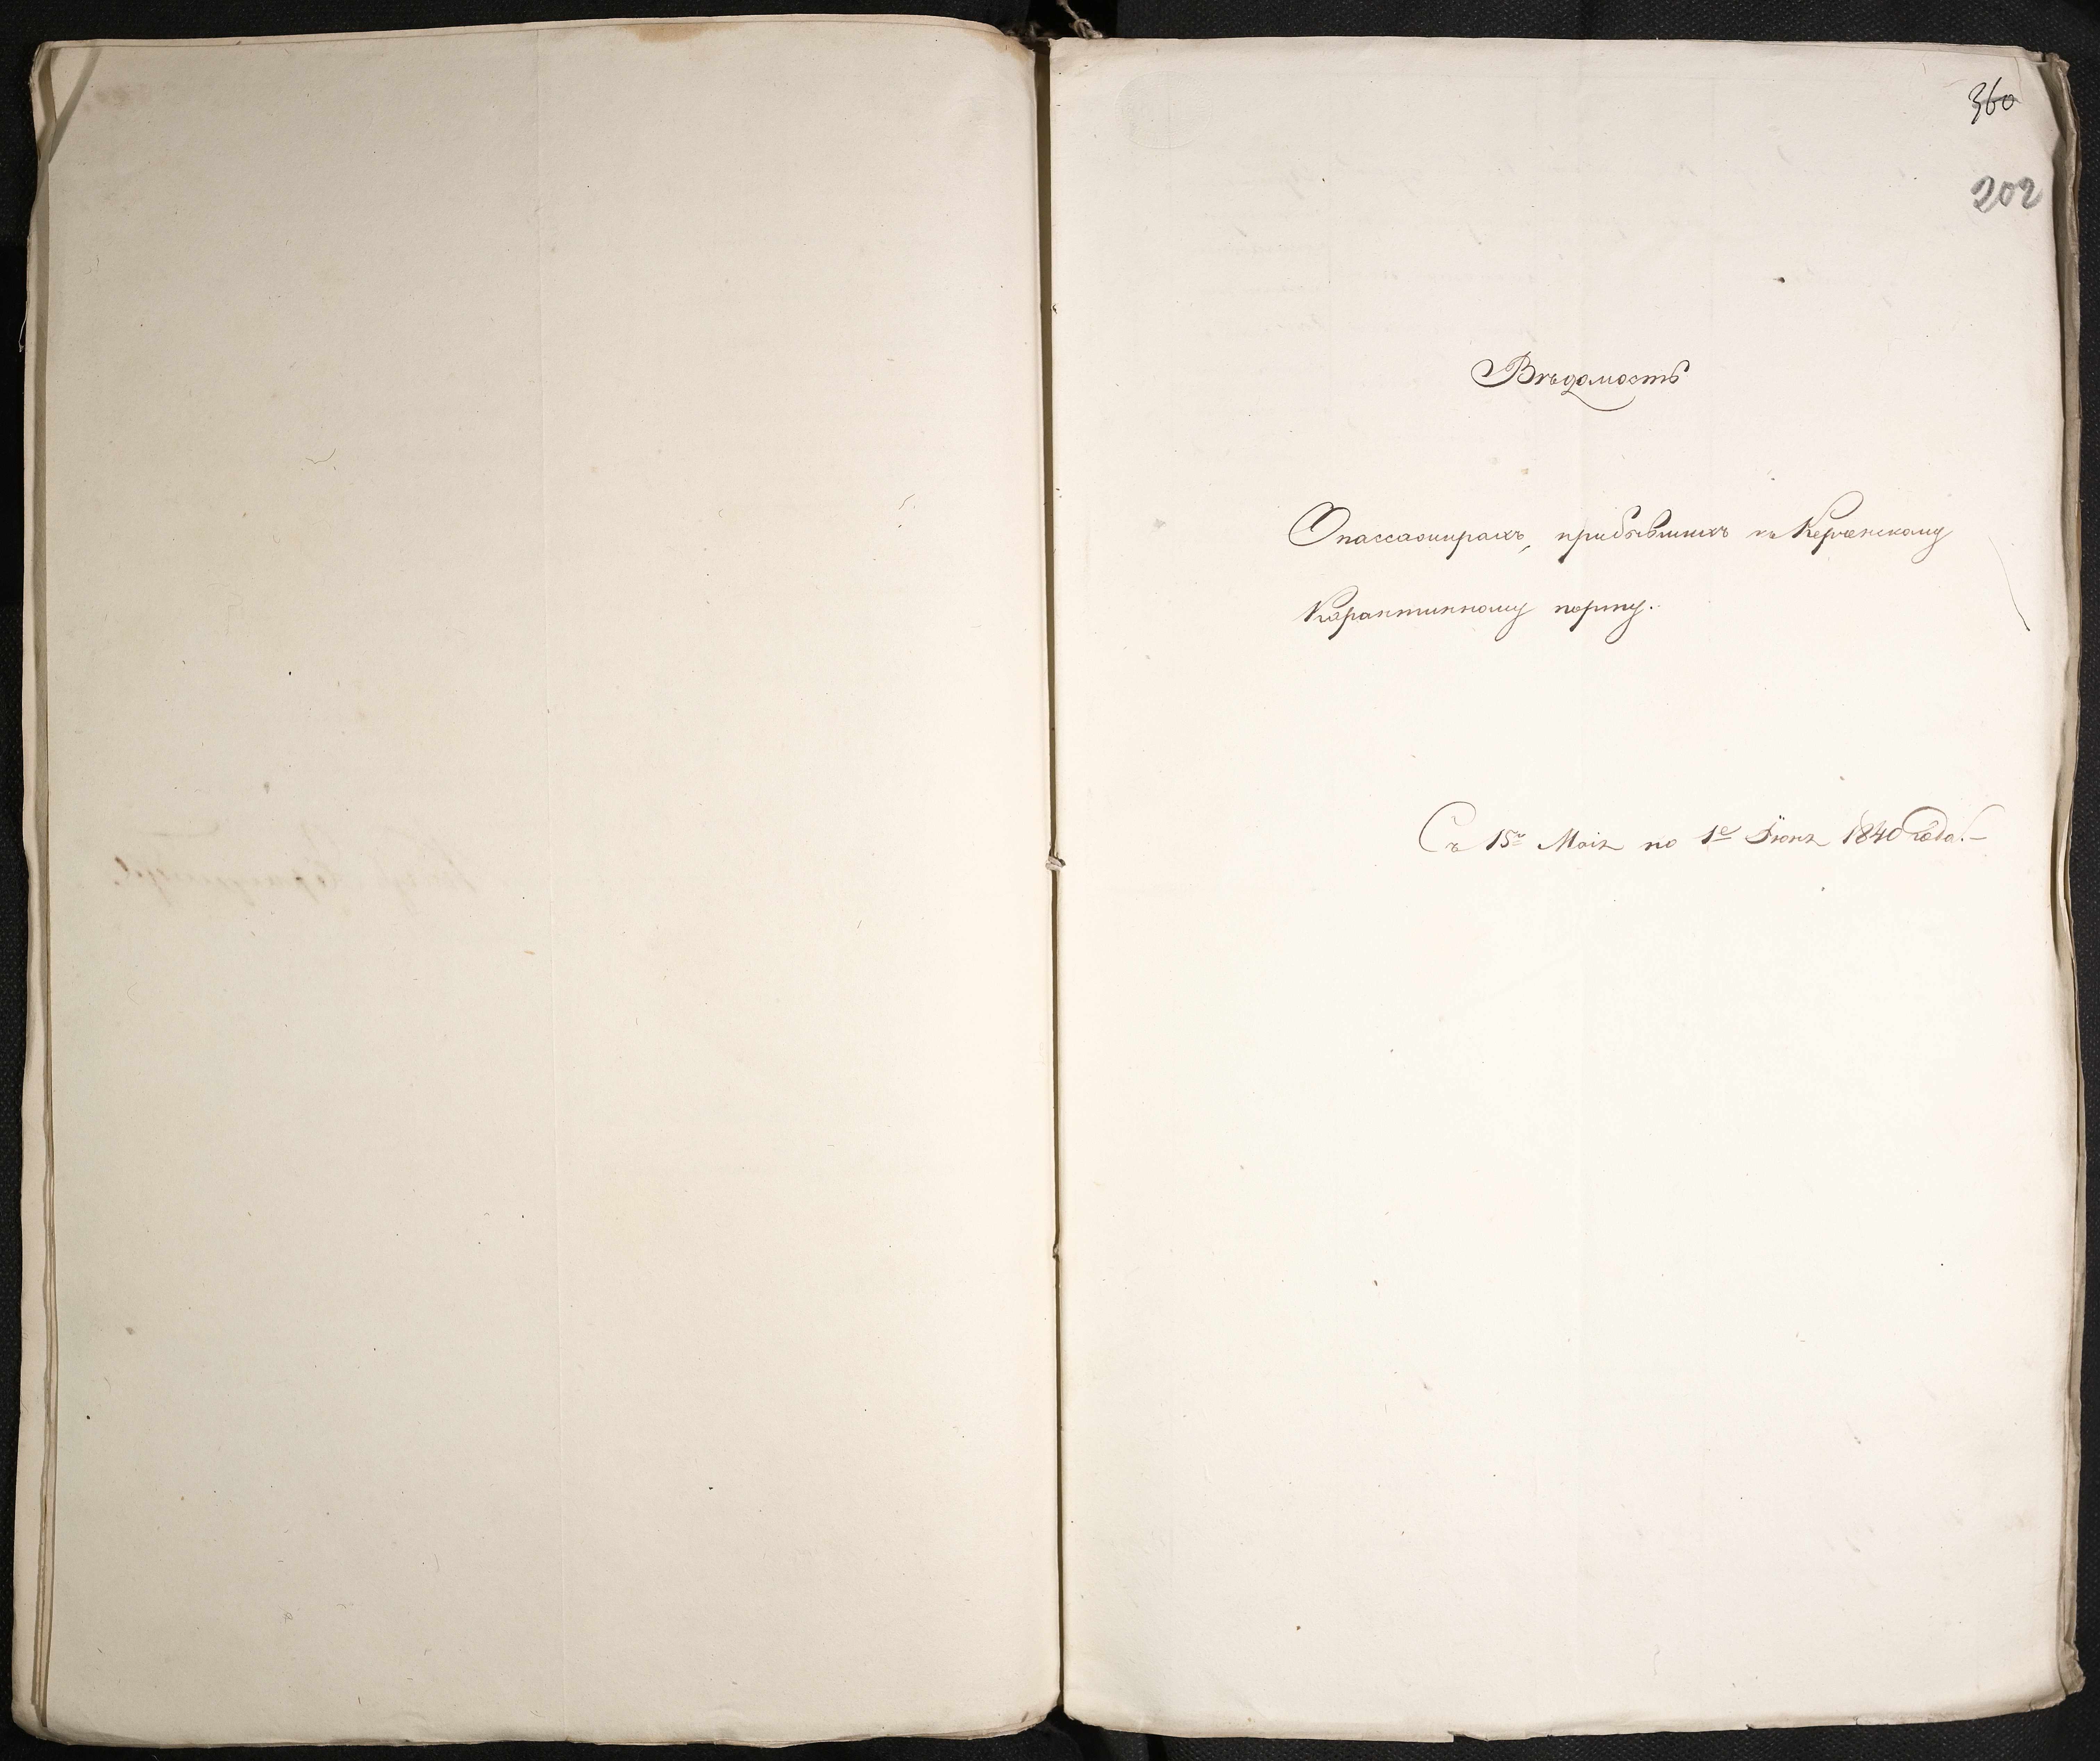 360
202
Вѣдомость
О пассажирахъ, прибывшихъ къ Керченскому
Карантинному порту.
Съ 15го Маія по 1е Іюня 1840 года.